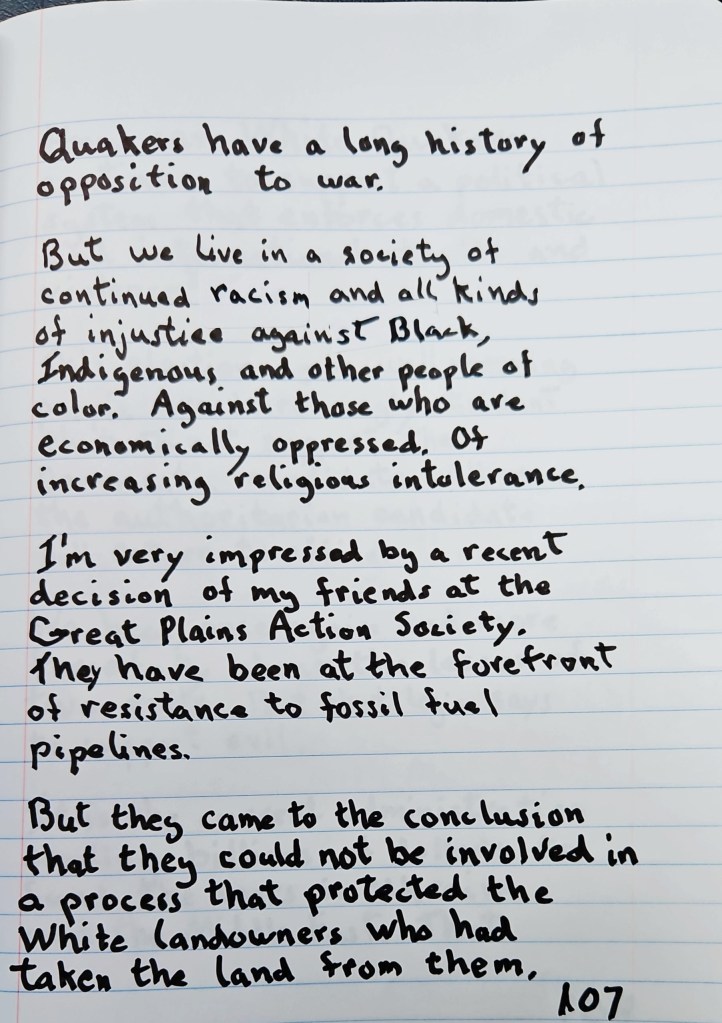 Quakers have a long history of
opposition to war.
But we live in a society of
continued racism and all kinds
of injustice against Black,
Indigenous and other people of
color. Against those who are
economically oppressed. Of
increasing religious intolerance.
I'm very impressed by a recent
decision of my friends at the
Great Plains Action Society.
They have been at the forefront
of resistance to fossil fuel
pipelines.
But they came to the conclusion
that they could not be involved in
a process that protected the
White landowners who had
taken the land from them.
107